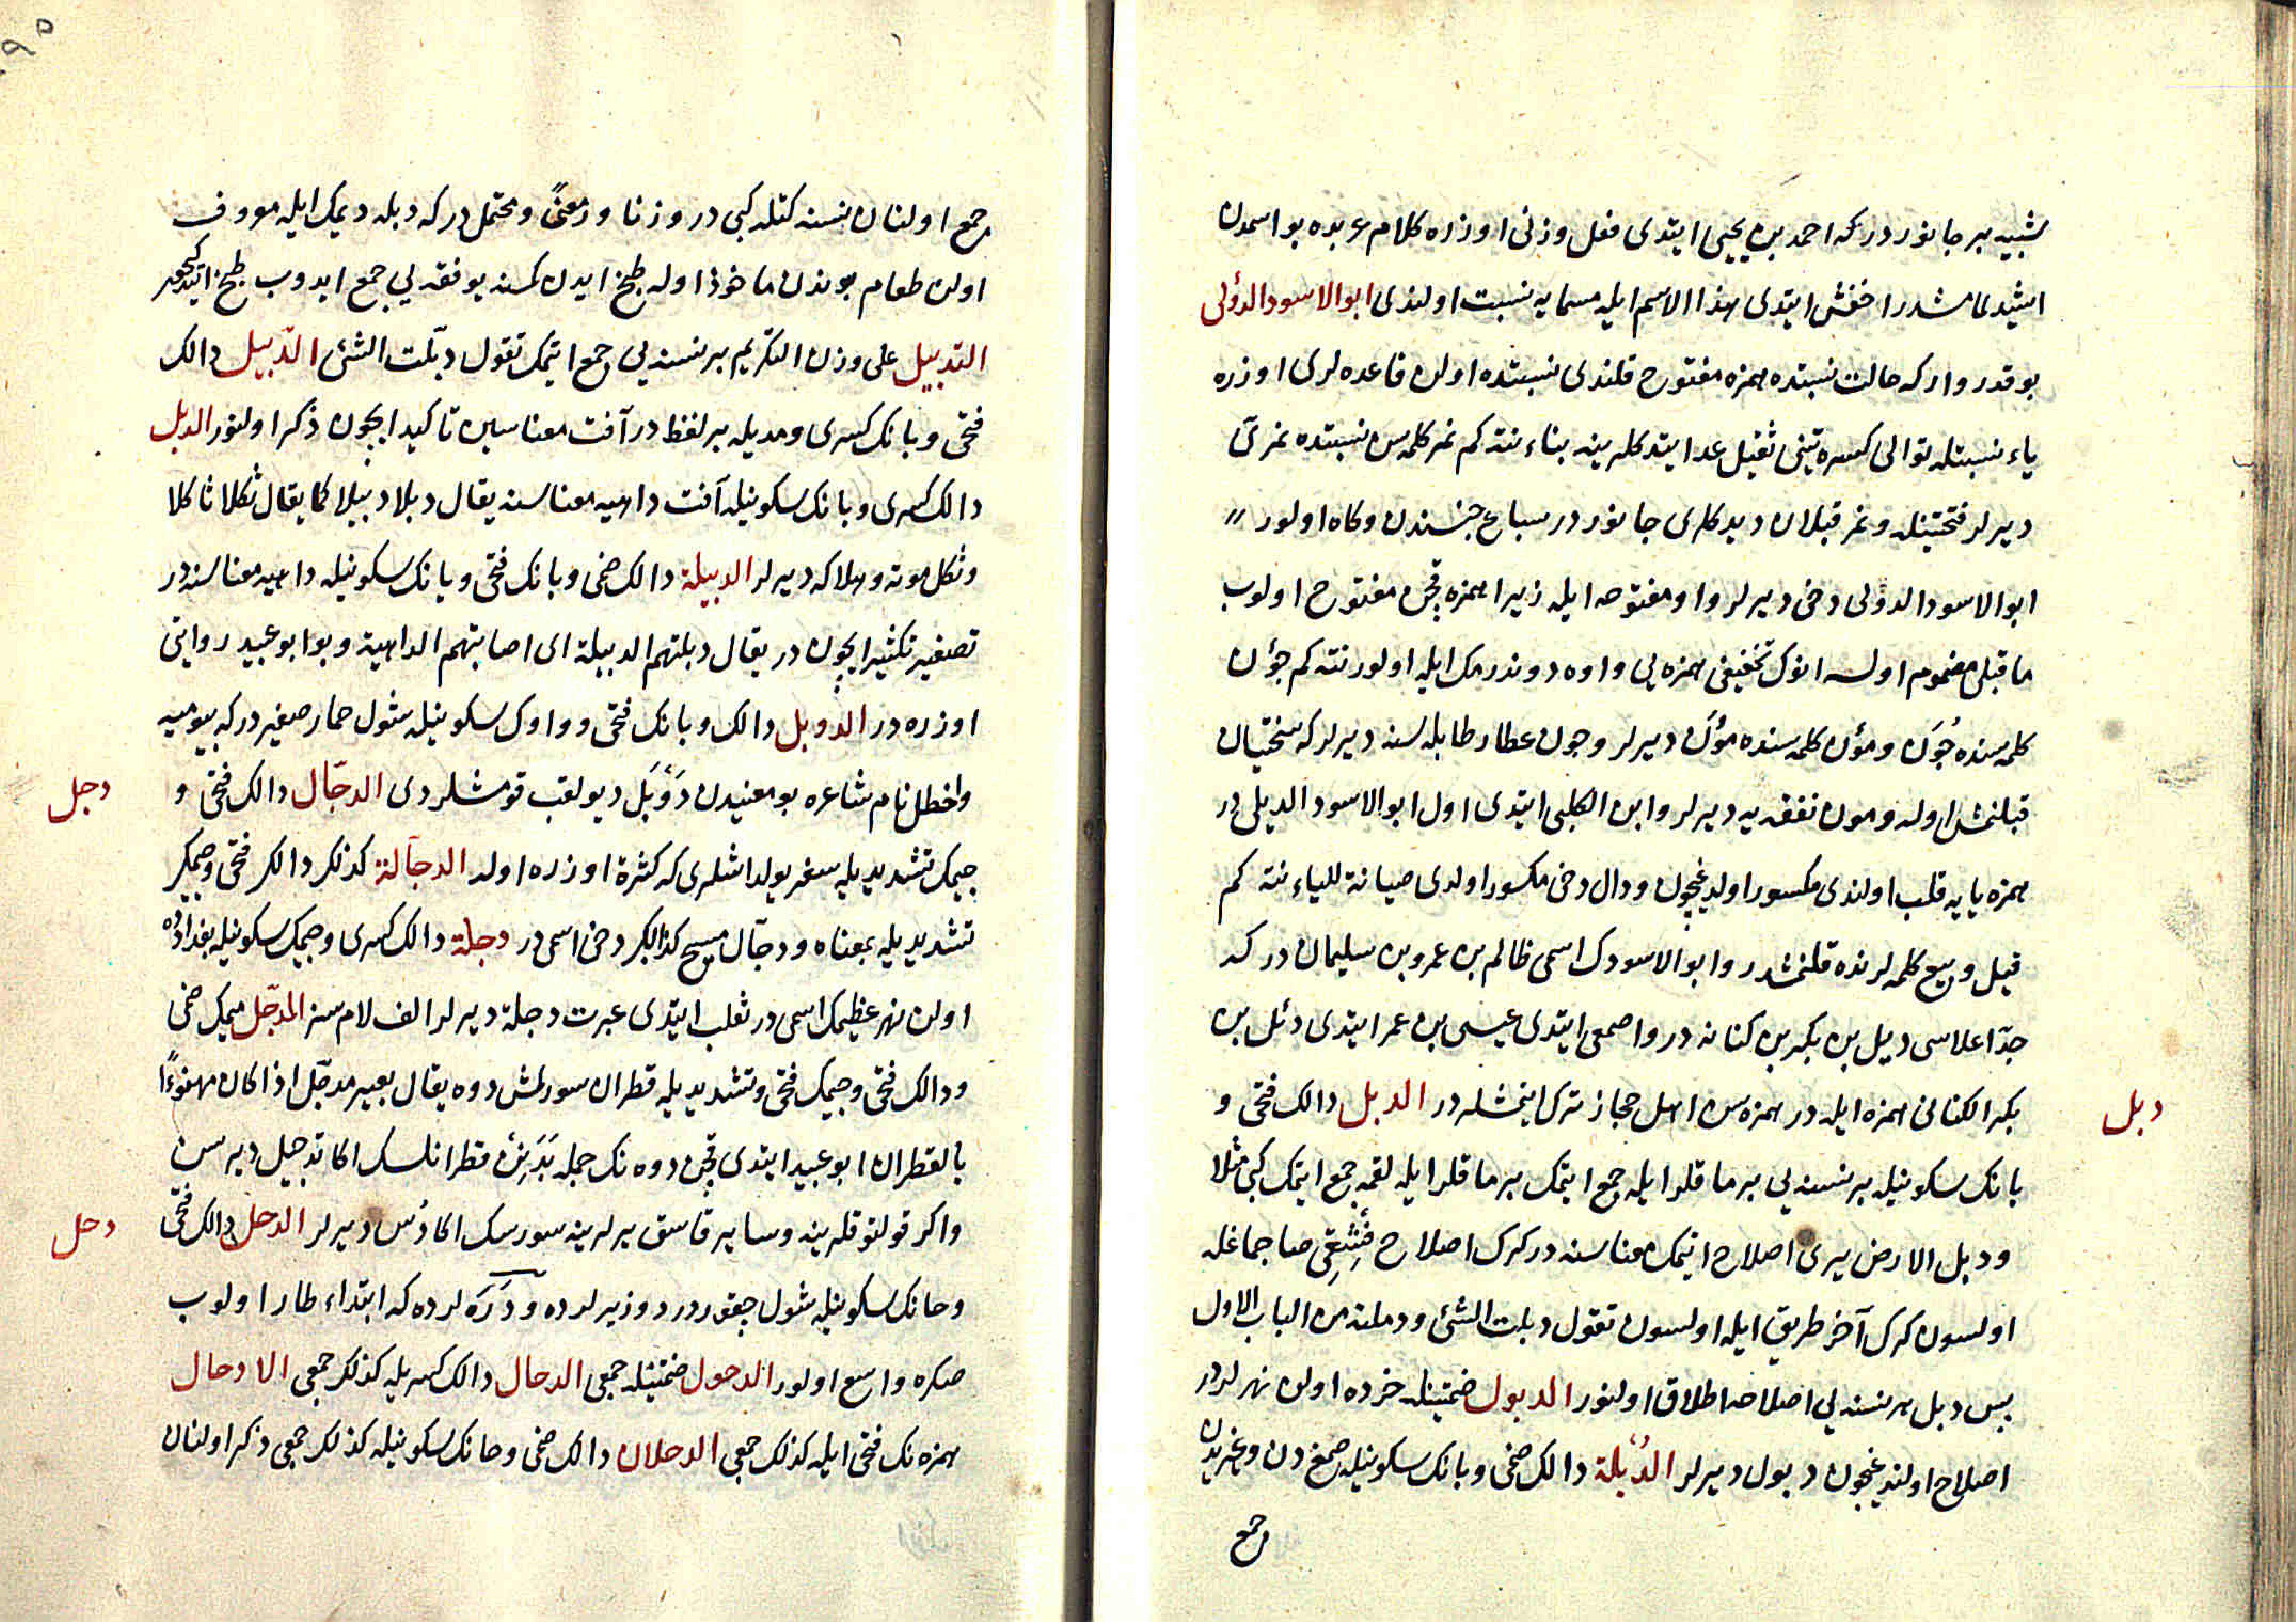 شبیه بر جانور در که احمد بن یحیی ایتدی فعل وزنی اوزره کلام عربده بو اسمدن
اشیدلمامشدر اخفش ایتدی بهذا الاسم ایله مسمایه نسبت اولندی ابو الاسود الدؤلی
بو قدر وار که حالت نسبتده همزه مفتوح قلندی نسبتده اولن قاعده لری اوزره
یاء نسبتله توالی کسره تینی ثقیل عد ایتدکلرینه بناء نته کم نمر کلمه سن نسبتده نمری
دیرلر فتحتینله و نمر قپلان دیدکلری جانور در سباع جنسندن و کاه اولور
ابو الاسود الدولی دخی دیرلر واو مفتوحه ایله زیرا همزه قچن مفتوح اولوب
ما قبلی مضموم اولسه انوک تخفیفی همزه یی واوه دوندرمک ایله اولور نته کم جؤن
کلمه سنده جُوَن و مؤن کلمه سنده مُوَن دیرلر و جون عطار طابله لسنه دیرلر که سختیان
قپلنمش اوله و مون نفقه یه دیرلر و ابن الکلبی ایتدی اول ابو الاسود الدیلی در
همزه یایه قلب اولندی مکسور اولدغیچون و دال دخی مکسور اولدی صیانة للیاء نته کم
قیل و بیع کلمه لرنده قلنمشدر و ابو الاسودک اسمی ظالم بن عمرو بن سلیمان در که
جدّ اعلاسی دیل بن بکر بن کنانه در و اصمعی ایتدی عیسی بن عمر ایتدی دئل بن
بکر الکنانی همزه ایله در همزه سن اهل حجاز ترک ایتمشلر در الدبل دالک فتحی و
دبل
بانک سکونیله بر نسنه یی برماقلر ایله جمع ایتمک برماقلر ایله لقمه جمع ایتمک کبی مثلا
و دبل الارض یری اصلاح ایتمک معناسنه در کرک اصلاح فشقی صاچماغله
اولسون کرک آخر طریق ایله اولسون تقول دبلت الشئ و دملته من الباب الاول
پس دبل هر نسنه یی اصلاحه اطلاق اولنور الدبول ضمتینله خرده اولن نهرلردر
اصلاح اولندغیچون دبول دیرلر الدُبلة دالک ضمی و بانک سکونیله صمغدن و غیریدن
جمع
جمع اولنان نسنه کتله کبی در وزنا و معنیً و محتمل در که دبله دیمک ایله معروف
اولن طعام بوندن ماخوذ اوله طبخ ایدن کمسنه یوفقه یی جمع ایدوب طبخ ایتدکیچون
التدبیل علی وزن التکریم بر نسنه یی جمع ایتمک تقول دبّلت الشئ الدّبیل دالک
فتحی و بانک کسری و مدیله بر لفظ در آفت معناسین تاکید ایچون ذکر اولنور الدبل
دالک کسری و بانک سکونیله آفت داهیه معناسنه یقال دبلا دبیلا کما یقال ثکلا ثاکلا
و ثکل موته و هلاکه دیرلر الدبیلة دالک ضمی و بانک فتحی و یانک سکونیله داهیه معناسنه در
تصغیر تکثیر ایچون در یقال دبلتهم الدبیلة ای اصابتهم الداهیة و بو ابو عبید روایتی
اوزره در الدوبل دالک و بانک فتحی و واوک سکونیله شول حمار صغیر در که بیومیه
و اخطل نام شاعره بو معنیدن دَوْبَل دیو لقب قومشلردی الدجّال دالک فتحی و
دجل
جیمک تشدیدیله سفر یولداشلری که کثرة اوزره اوله الدجّالة کذلک دالک فتحی و جیمک
تشدیدیله بمعناه و دجّال مسیح کذابک دخی اسمی در دجلة دالک کسری و جیمک سکونیله بغدادده
اولن نهر عظیمک اسمی در ثعلب ایتدی عبرت دجلة دیرلر الف لام سز المدجّل میمک ضمی
و دالک فتحی و جیمک فتحی و تشدیدیله قطران سورلمش دوه یقال بعیر مدجّل اذا کان مهنوءًا
بالقطران ابو عبید ایتدی قچن دوه نک جمله بدنین قطرانلسک اکا تدجیل دیرسن
و اکر قولتوقلرینه و سایر قاسق یرلرینه سورسک اکا دُس دیرلر الدحل دالک فتحی
دحل
و حانک سکونیله شول چقوردر دوز یرلرده و دَرَه لرده که ابتداء طار اولوب
صکره واسع اولور الدحول ضمتینله جمعی الدحال دالک کسریله کذلک جمعی الادحال
همزه نک فتحی ایله کذلک جمعی الدحلان دالک ضمی و حانک سکونیله کذلک جمعی ذکر اولنان